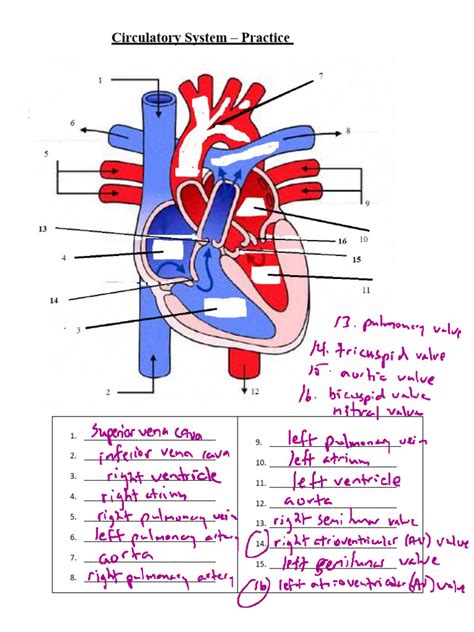 Circulatory System – Practice
1
7
6
8
5
9
13
16
10
4
15
11
14
3
2
12
13. pulmonary valve
14. tricuspid valve
15 aortic valve
16. bicuspid valve
mitral valve
1. Superior vena cava
2. inferior vena cava
3. right ventricle
4. right atrium
5. right pulmonary vein
6. left pulmonary artery
7. aorta
8. right pulmonary artery
9. left pulmonary vein
10. left atrium
11. left ventricle
12. aorta
13. right semilunar valve
14. right atrioventricular (AV) valve
15. left semilunar valve
16 left atrioventricular (AV) valve